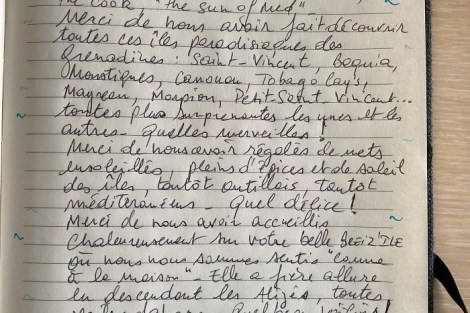 the Cook, "the sum of Med"_
Merci de nous avoir fait découvrir
toutes ces îles paradisiaques des
Grenadines : Saint-Vincent, Bequia,
Moustiques, Canouan, Tobago Cays,
Mayreau, Morpion, Petit-Saint Vincent...
toutes plus surprenantes les unes et les
autres_ Quelles merveilles !
Merci de nous avoir régalés de mets
ensoleillés, pleins d'épices et de soleil
des îles, tantôt antillais, tantôt
méditeranéens_ Quel délice !
Merci de nous avoir accueillis
Chaleureusement sur votre belle BREIZ'ILE
où nous nous sommes sentis "comme
à la maison"_ Elle a fière allure
en descendant les Alizés, toutes
Quel beau voilier !